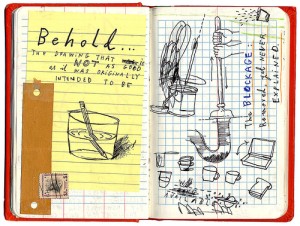 Behold...
THE DRAWING THAT
NOT AS GOOD
as it WAS ORIGINALLY
INTENDED TO BE
The BLOCKAGE.
Removed, yet NEVER
EXPLAINED.